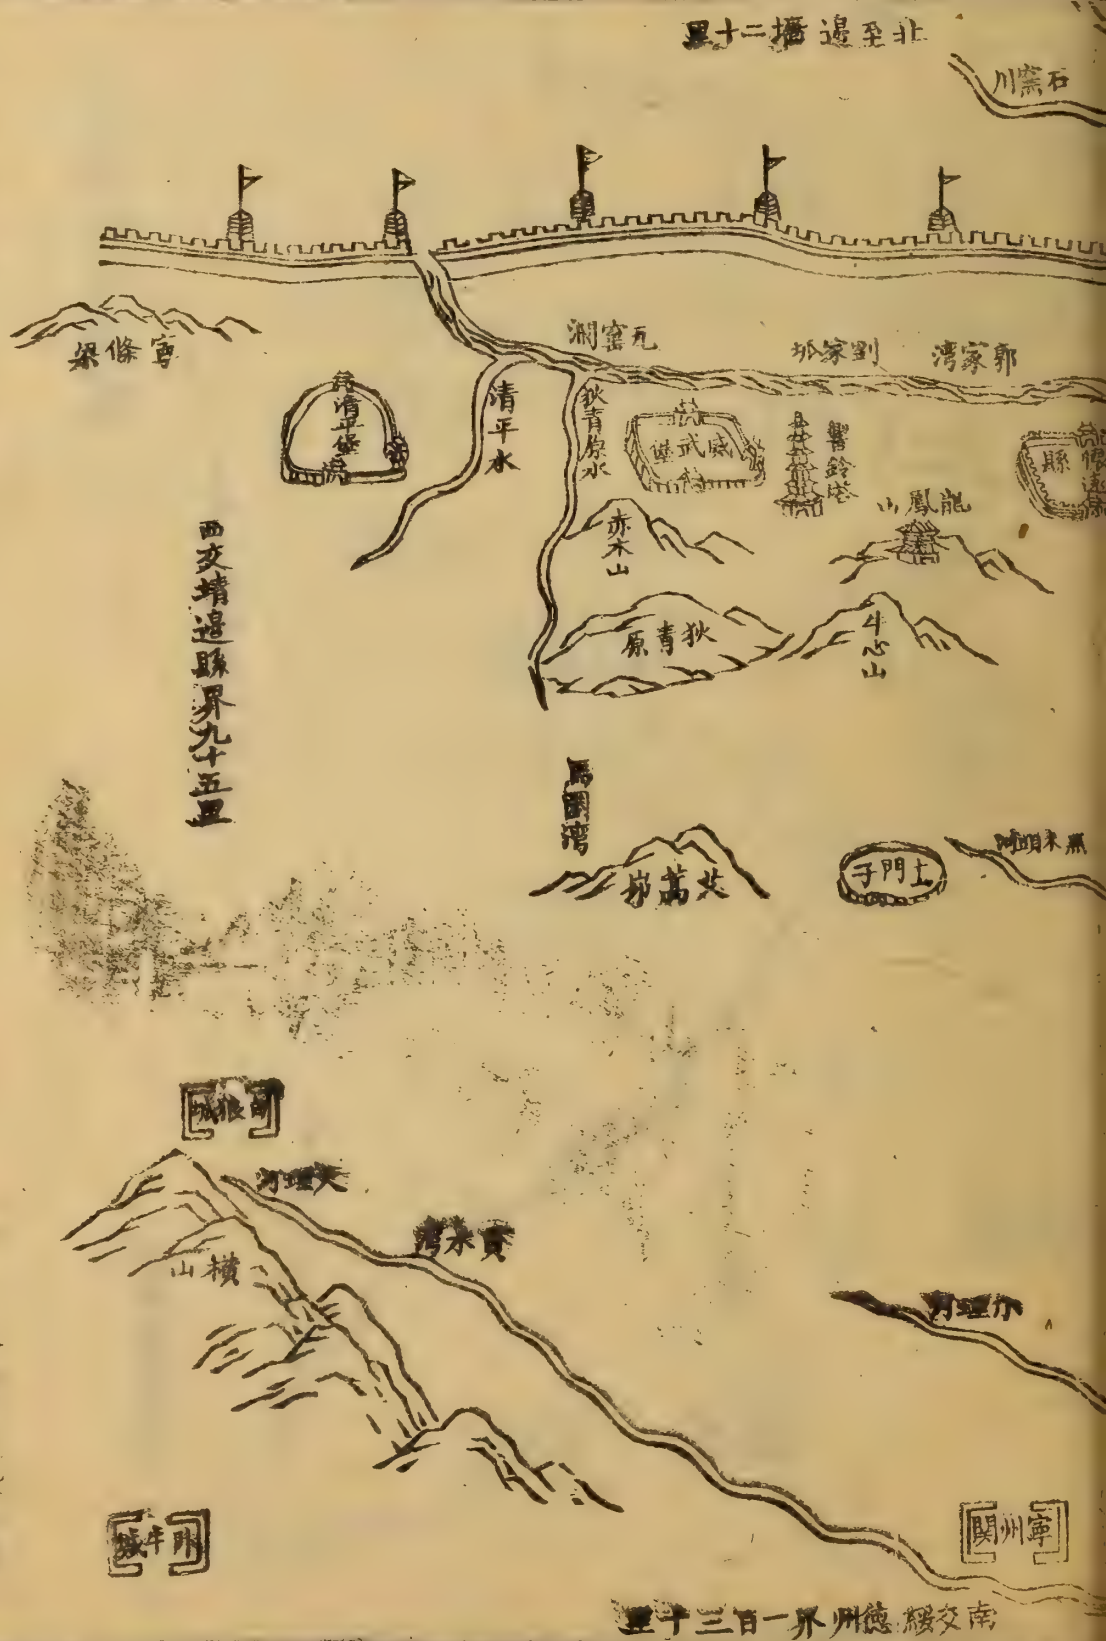 北至邉墻二十里
石窯川
寕條梁
瓦窑澗
劉家㘭
郭家湾
舊清平堡
清平水
狄青原水
威武堡
響鈴塔
懷遠縣
龍鳳山
赤木山
狄青原
牛心山
西交靖邉縣界九十五里
馬圈湾
艾蒿峁
土門子
黑木頭河
白狼城
大理河
橫山
賈木湾
小理河
永平城
寕州関
南交綏徳州界一百三十里